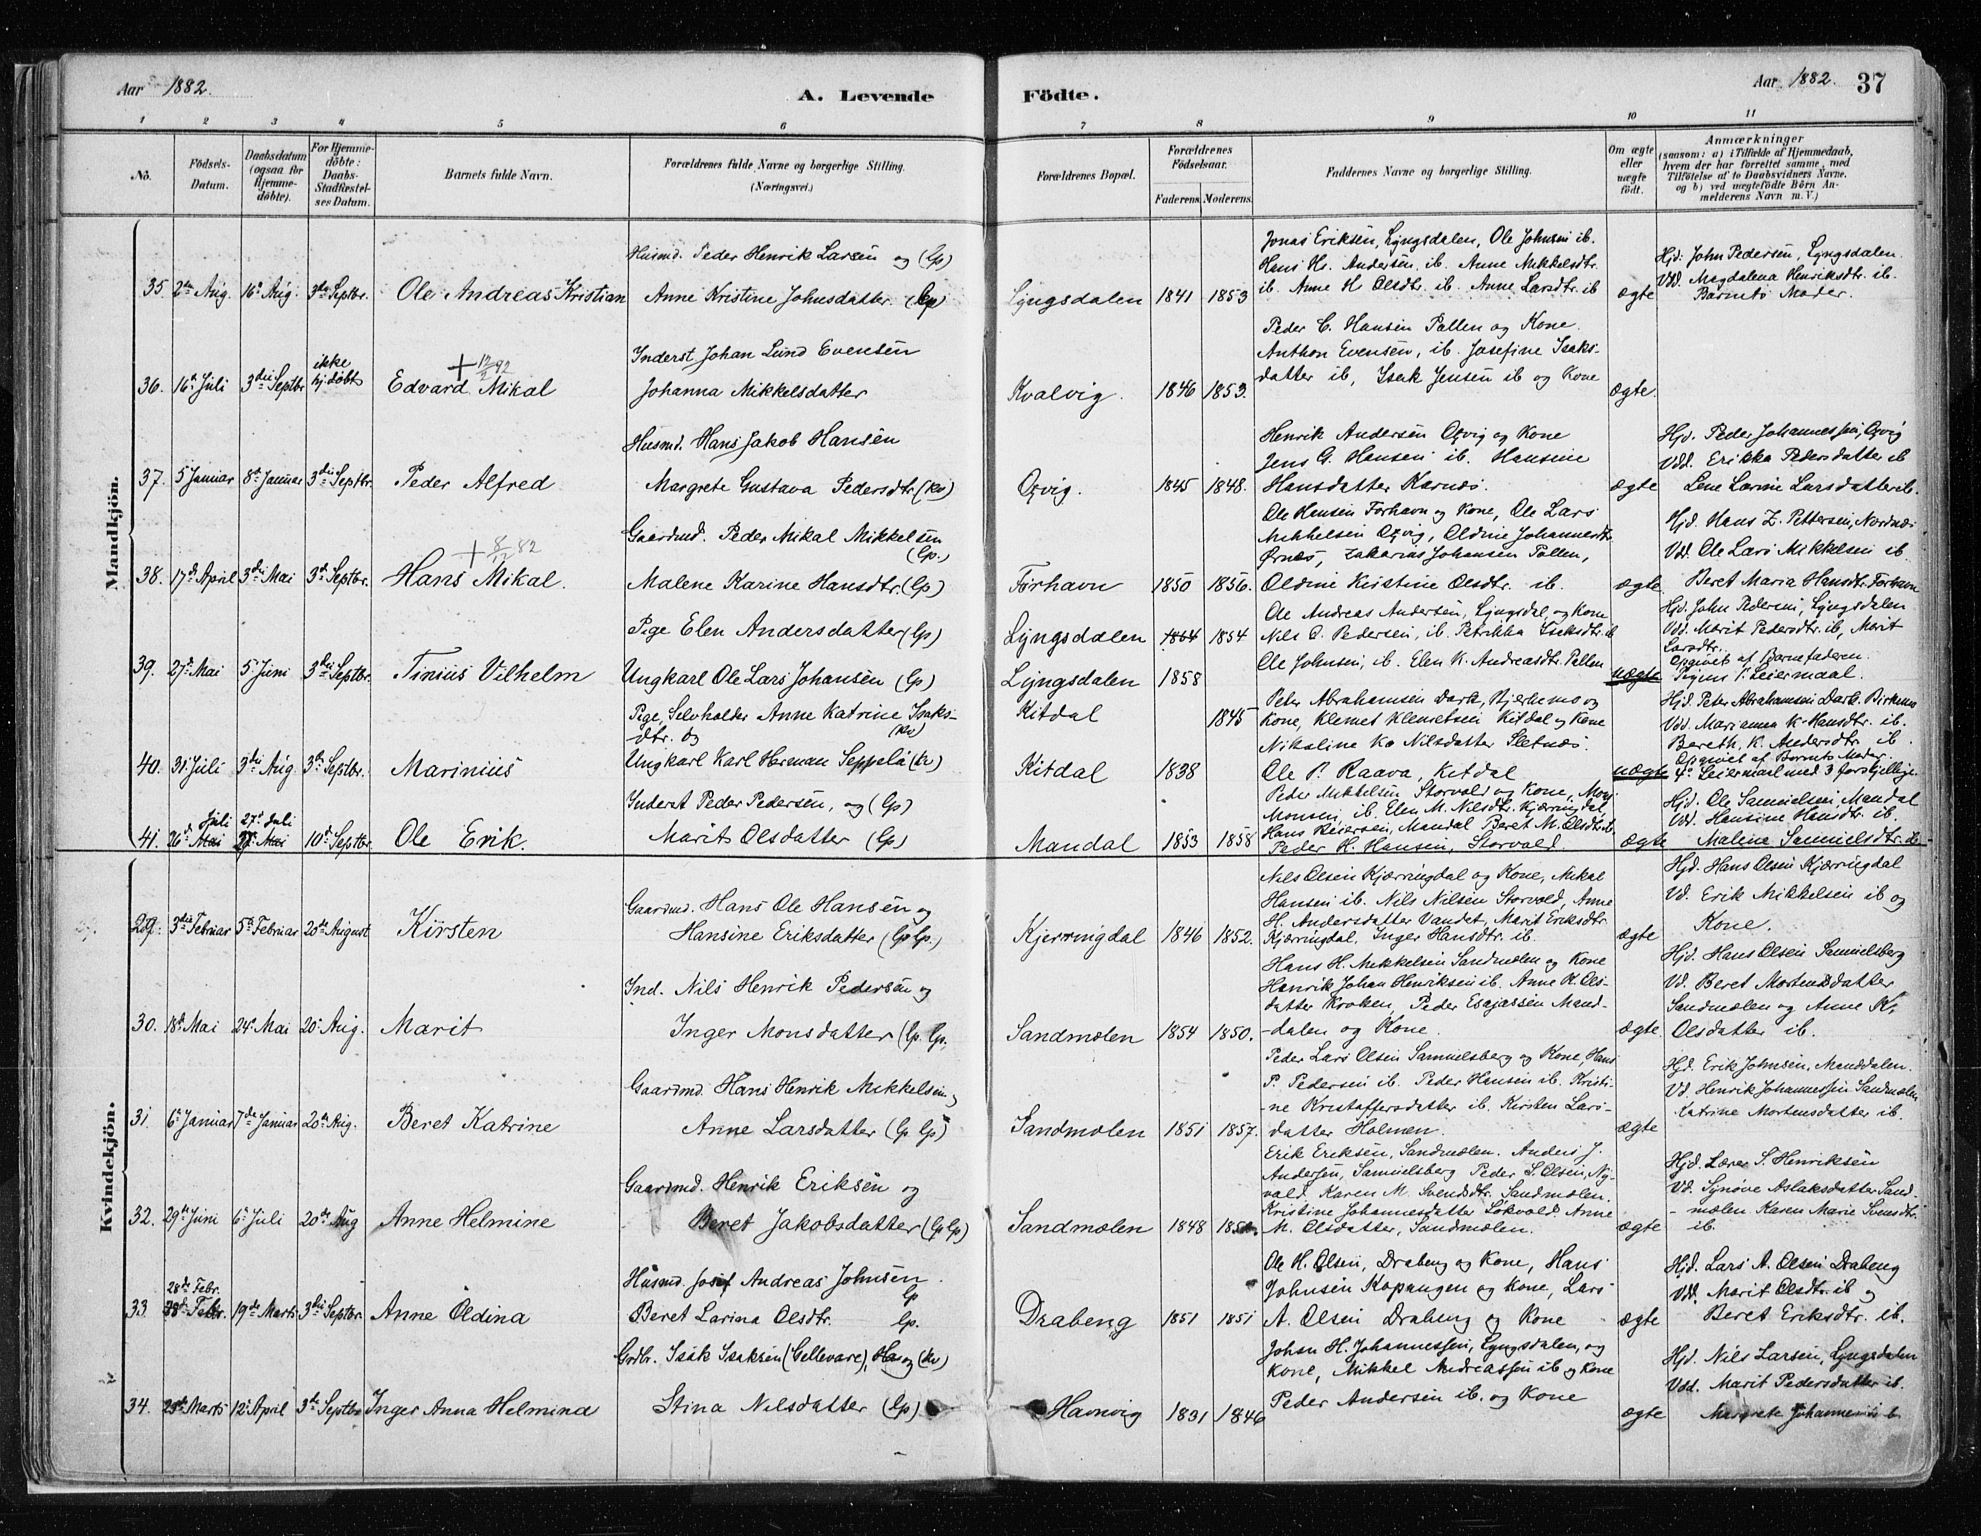 Aar 1882.
A. Levende Födte.
Aar 1882. 37
1 2 3 4 5 6 7 8 9 10 11
No.
Födsels-
Datum.
Daabsdatum
(ogsaa for
Hjemme-
döbte).
For Hjemme-
döbte:
Daabs-
Stadfæstel-
ses Datum.
Barnets fulde Navn.
Forældrenes fulde Navne og borgerlige Stilling.
(Næringsvei.)
Forældrenes Bopæl.
Forældrenes
Födselsaar.
Faderens. Moderens.
Faddernes Navne og borgerlige Stilling.
Om ægte
eller
uægte
födt.
Anmærkninger
(saasom: a) i Tilfælde af Hjemmedaab,
hvem der har forrettet samme, med
Tilföielse af to Daabsvidners Navne.
og b) ved uægtefödte Börn An-
melderens Navn m. V.)
Mandkjön.
35. 2den Aug. 16de Aug. 3die Septbr. Ole Andreas Kristian
Husmd. Peder Henrik Larsen og (Lp)
Anne Kristine Johnsdatter (Lp)
Lyngsdalen 1841 1853
Jonas Eriksen, Lyngsdalen, Ole Johnsen ib.
Hans Hs. Andersen, ib. Anne Mikkelsdtr.
ib. Anne H Olsdtr. ib. Anne Larsdtr. ib
ægte
Hjd. John Pedersen, Lyngsdalen
Vdd. Magdalena Henriksdtr. ib.
Barnets Moder.
36. 16de Juli 3die Septbr ikke
hj. döbt
+ 12/2 92
Edvard Mikal
Inderst Johan Lund Evensen
Johanna Mikkelsdatter
Kvalvig. 1846 1853.
Peder C. Hansen Pallen og Kone.
Anthon Evensen, ib. Josefine Isaks-
datter ib, Isak Jensen ib og Kone
ægte.
37. 5 Januar 8de Januar 3die Septbr. Peder Alfred
Husmd. Hans Jakob Hansen
Margrete Gustava Pedersdtr. (Kv)
Oxvig. 1845 1848.
Henrik Andersen Oxvig og Kone
Jens G. Hansen ib. Hansine
Hansdatter Karnæs.
ægte
Hjd. Peder Johannessen, Oxvig
Vdd. Erikka Pedersdatter ib
Lene Larine Larsdatter ib.
38. 17de April 3die Mai 3de Septbr.
+ 8/12 82
Hans Mikal.
Gaardmd. Peder Mikal Mikkelsen
(Lp.)
Malene Karine Hansdtr. (Lp)
Förhavn 1850 1856.
Ole Hansen Förhavn og Kone, Ole Lars
Mikkelsen Oxvig, Oldine Johannesdtr.
Ørnæs, Zakarias Johansen Pollen,
Oldine Kristine Olsdtr. ib.
ægte
Hjd. Hans Z. Pettersen, Nordnæs
Vdd. Ole Lars Mikkelsen ib
Beret Maria Hansdtr. Förhavn
39. 27de Mai 5 Juni 3die Septbr. Tinius Vilhelm
Pige Elen Andersdatter (Lp)
Ungkarl Ole Lars Johansen (Lp)
Lyngsdalen 1864 1854
Lyngsdalen 1858
Ole Andreas Andersen, Lyngsdal og Kone
Nils P. Pedersen, ib. Petrikka Isaksdtr. ib
Ole Johnsen, ib. Elen K. Andreasdtr. Pallen
uægte
Hjd. John Pedersen, Lyngsdalen
Vdd. Marit Pedersdtr. ib, Marit
Larsdtr.
Opgivet af Barnefaderen.
Pigens 1. Leiermaal.
40. 31 Juli 3die Aug 3die Septbr. Marinius
Pige, Selvholder Anne Katrine Isaks-
dtr. og (Kv)
Ungkarl Karl Herman Seppelä (Kv)
Kitdal 1845
Kitdal 1838
Peter Abrahamsen Dark, Bjerkemo og
Kone, Klemet Klemetsen Kitdal og Kone
Nikoline Ka Nilsdatter Sletnæs.
Ole P. Raava, Kitdal
uægte
Hjd. Peter Abrahamsen Dark Birkemo
Vdd. Marianna K Hansdtr. ib.
Bereth. K. Andersdtr. ib.
Opgivet af Barnets Moder.
4de Leiermaal med 3 forskjellige.
41. 26de Juli Mai 27de Juli 27de Mai 10de Septbr. Ole Erik.
Inderst Peder Pedersen, og (Lp)
Marit Olsdatter (Lp)
Mandal 1853 1858
Peder Mikkelsen Storvold og Kone, Mons
Monsen, ib. Elen M. Nilsdtr. Kjærringdal,
Hans Peiersen, Mandal Beret M. Olsdtr. ib
Peder H. Hansen, Storvold.
ægte
Hjd. Ole Samuelsen, Mandal
Vdd. Hansine Hansdtr. ib.
Malene Samuelsdtr. ib.
Kvindekjön.
29. 3die Februar 5de Februar 20de August Kirsten
Gaardmd. Hans Ole Hansen og
Hansine Eriksdatter (Lp Lp.)
Kjerringdal 1846 1852.
Nils Olsen Kjærringdal og Kone, Mikal
Hansen ib. Nils Nilsen Storvold, Anne
H. Andersdatter Vandet, Marit Eriksdtr.
Kjærringdal, Inger Hansdtr. ib.
ægte
Hjd. Hans Olsen Kjærringdal
Vd. Erik Mikkelsen ib og
Kone.
30. 18de Mai 24de Mai 20de Aug. Marit
Ind. Nils Henrik Pedersen og
Inger Monsdatter (Lp. Lp.
Sandmælen 1854 1850.
Hans H. Mikkelsen Sandmælen og Kone
Henrik Johan Henriksen ib. Anne K. Ols-
datter Kroken, Peder Esajassen Mand-
-dalen og Kone.
ægte
Hjd. Hans Olsen Samuelsberg
Vd. Beret Mortensdatter
Sandmælen og Anne K.
Olsdatter ib.
31. 6te Januar 7de Januar 20de Aug. Beret Katrine
Gaardmd. Hans Henrik Mikkelsen og
Anne Larsdatter (Lp Lp)
Sandmælen 1851 1857.
Peder Lars Olsen Samuelsberg og Kone, Hans
P. Pedersen ib. Peder Hansen ib. Kristi-
ne Kristaffersdatter ib. Kirsten Lars-
datter Holmen.
ægte
Hjd. Erik Johnsen, Manddalen.
Vd. Henrik Johannessen Sandmælen
Katrine Mortensdatter ib.
32. 29de Juni 6te Juli 20de Aug Anne Helmine
Gaardmd. Henrik Eriksen og
Beret Jakobsdatter (Lp Lp)
Sandmælen 1848
Erik Eriksen, Sandmælen. Anders J.
Andersen, Samuelsberg Peder S. Olsen, Ny-
vold. Karen M. Svendsdtr. Sandmælen.
Kristine Johannesdatter Løkvold. Anne
M. Olsdatter, Sandmælen.
ægte
Hjd. Lærer S. Henriksen
Vd. Synöve Aslaksdatter Sand-
-mælen Karen Marie Svensdtr.
ib.
33 28de Febr. 19de Marts 3die Septbr. Anne Oldina
Husmd. Josef Andreas Johnsen. Lp
Beret Larina Olsdtr. Lp.
Drabeng 1851 1851
Ole H. Olsen, Drabeng og Kone, Hans
Johnsen Kopangen og Kone, Lars
A. Olsen Drabeng og Kone
ægte
Hjd. Lars A. Olsen Drabeng
Vdd. Marit Olsdtr. ib og
Beret Eriksdtr. ib.
34. Marts 12te April 3die Septbr Inger Anna Helmina
Grdbr. Isak Isaksen (Gellevare), og (Kv)
Stina Nilsdatter (Lp)
Havnvig 1831 1846
Johan H. Johannessen, Lyngsdalen, og
Kone, Mikkel Andreassen ib og Kone
Peder Andersen ib. og Kone
ægte
Hjd. Nils Larsen, Lyngsdalen
Vdd. Marit Pedersdatter ib.
Margrete ib